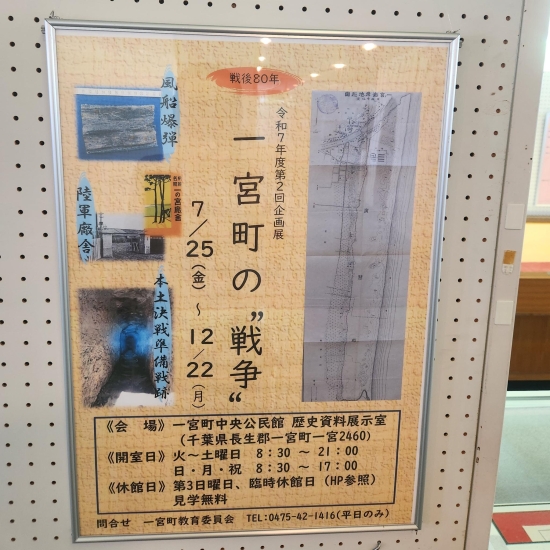 戦後80年
令和7年度第2回企画展
一宮町の〝戦争〟
7/25(金)～12/22(月)
風船爆弾
陸軍廠舎、
一の宮廠舎
本土決戦準備戦跡
《会　場》一宮町中央公民館 歴史資料展示室
（千葉県長生郡一宮町一宮2460）
《開室日》火～土曜日　8：30 ～ 21：00
日・月・祝　8：30 ～ 17：00
《休館日》第3日曜日、臨時休館日（HP参照）
見学無料
問合せ　一宮町教育委員会　TEL:0475-42-1416(平日のみ)